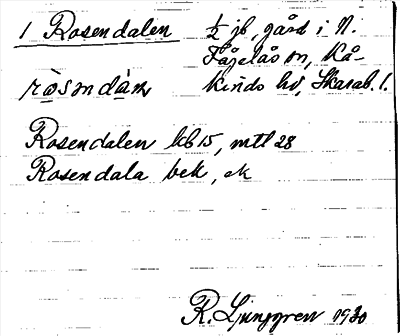 1 Rosendalen ½ jb, gård i N.
Fågelås sn, Kå-
kinds hd, Skarab. l.
ròsəndàn
Rosendalen kb 15, mtl 28
Rosendala bek, ek
R. Ljunggren 1930